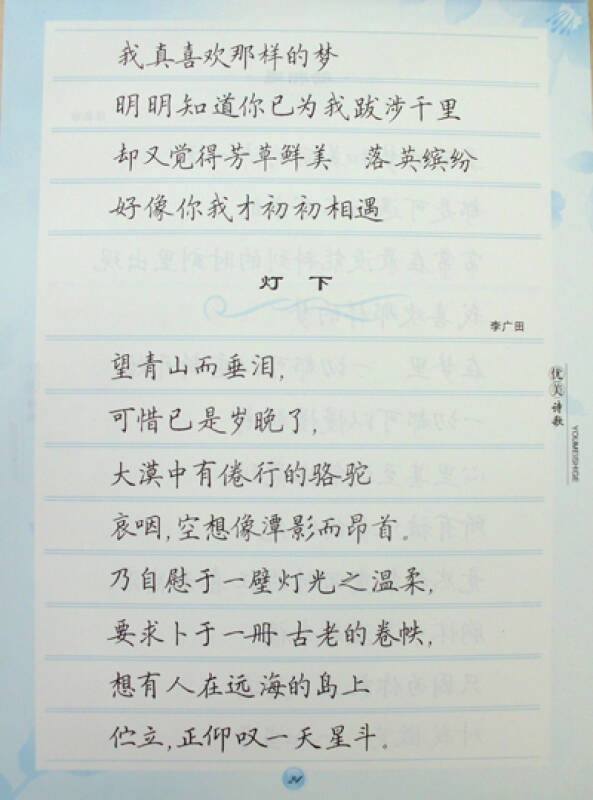 我真喜欢那样的梦
明明知道你已为我跋涉千里
却又觉得芳草鲜美 落英缤纷
好像你我才初初相遇
灯下
李广田
望青山而垂泪,
可惜已是岁晚了,
大漠中有倦行的骆驼
哀咽,空想像潭影而昂首。
乃自慰于一壁灯光之温柔,
要求卜于一册古老的卷帙,
想有人在远海的岛上
伫立,正仰叹一天星斗。
优美诗歌
YOUMEISHIGE